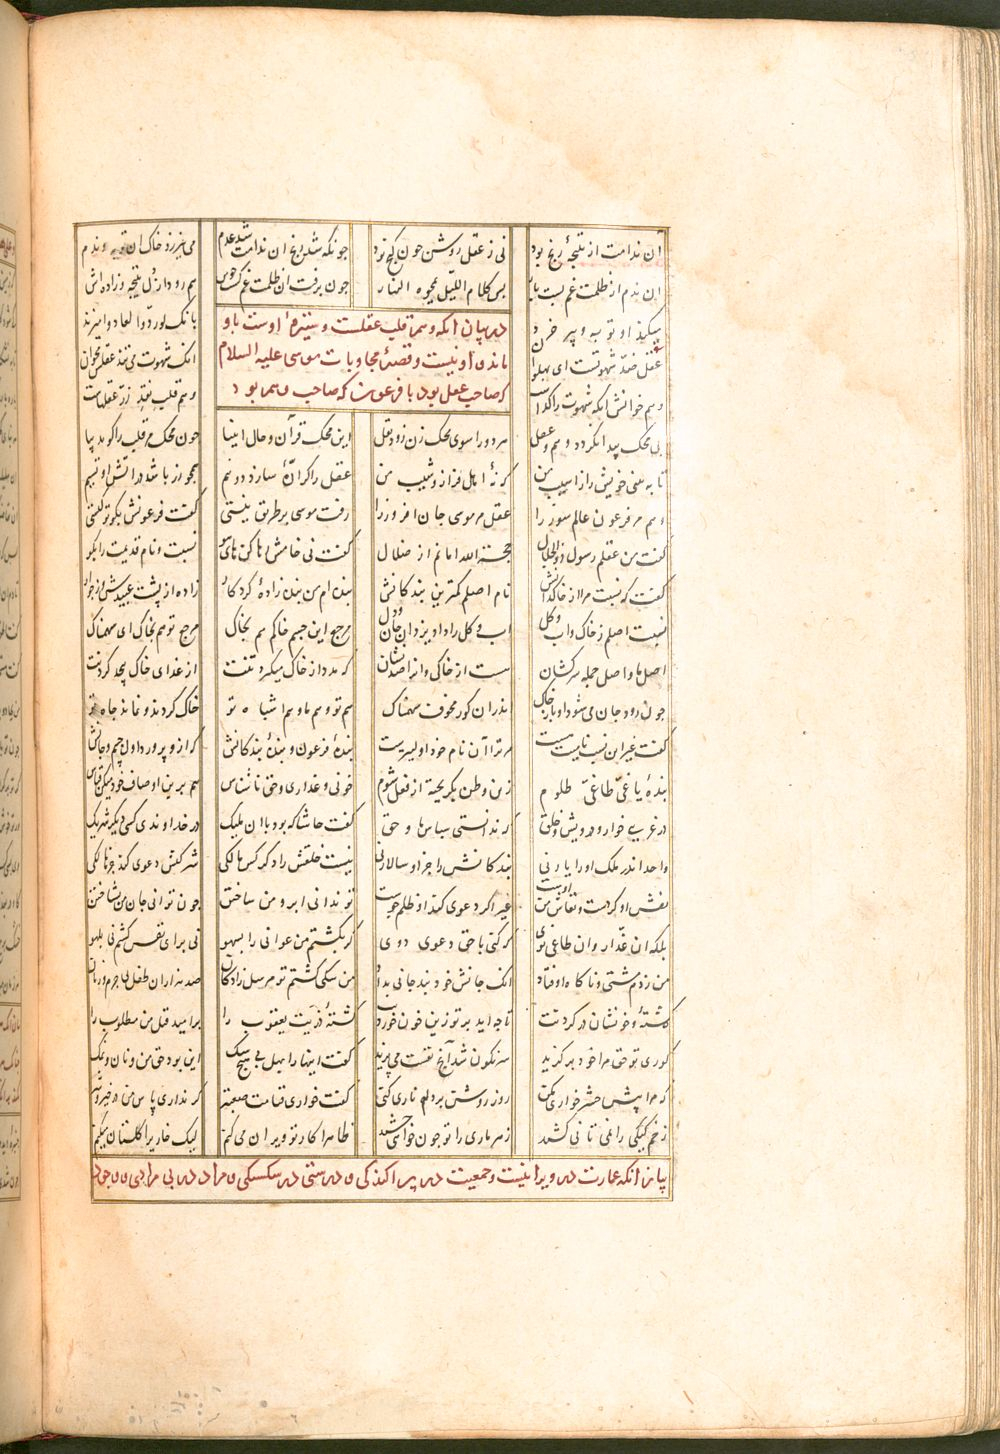 آن ندامت از نتیجهٔ رنج بود نی ز عقل روشن چون گنج بود چونکه شد رنج آن ندامت شد عدم می نیرزد خاک آن توبه و ندم
آن ندم از ظلمت غم بست بار پس کلام اللیل یمحوه النهار چون برفت آن ظلمت غم گشت خوش هم رود از دل نتیجه و زاده اش
میکند او توبه و پیر خرد بانک لو ردوا لعادوا میزند
در بیان آنکه وهم قلب عقلست و ستیزهٔ اوست باو
عقل ضد شهوتست ای پهلوان آنک شهوت می تند عقلش مخوان
ماند و او نیست و قصهٔ مجاوبات موسی علیه السلام
وهم خوانش آنکه شهوت را گداست وهم قلب نقد زر عقلهاست
که صاحب عقل بود با فرعون که صاحب وهم بود
بی محک پیدا نگردد وهم و عقل هر دو را سوی محک زن زود نقل این محک قرآن و حال انبیا چون محک مر قلب را گوید بیا
تا به بینی خویش را ز آسیب من که نهٔ اهل فراز و شیب من عقل را گر ارهٔ سازد دو نیم همچو زر باشد در آتش او بسیم
وهم مر فرعون عالم سوز را عقل مر موسی جان افروز را رفت موسی بر طریق نیستی گفت فرعونش بگو تو کیستی
گفت من عقلم رسول ذوالجلال حجة الله امانم از ضلال گفت نی خامش رها کن های هو نسبت و نام قدیمت را بگو
گفت که نسبت مرا از خاکدانش نام اصلم کمترین بندکانش بنده ام من بنده زادهٔ کردکار زاده از پشت عبید و از جوار
نسبت اصلم ز خاک و آب و کل آب و کل را داد یزدان جان و دل مرجع این جسم خاکم هم بخاک مرجع تو هم بخاک ای سهمناک
اصل ما و اصل جمله سرکشان هست از خاکی و آنرا صد نشان که مدد از خاک میکیرد تنت از غذای خاک پیچد کردنت
چون رود جان می شود او باز خاک اندران کور مخوف سهمناک هم تو و هم ما و هم اشباه تو خاک کردند و نماند جاه تو
گفت غیر این نسب نامیت هست مر ترا آن نام خود اولیترست بندهٔ فرعون و بندهٔ بندکانش که ازو پرورد اول جسم و جانش
بندهٔ یاغی طاغی ظلوم زین وطن بکریخته از فعل شوم خونی و غداری و حق ناشناس هم برین اوصاف خود میکن قیاس
در غریبی خوار و درویش و خلق که ندانستی سپاس ما و حق گفت حاشا که بود با آن ملیک در خداوندی کسی دیکر شریک
واحد اندر ملک او را یار نی بندکانش را جز او سالار نی نیست خلقش را دکر کس مالکی شرکتش دعوی کند جز هالکی
نقش او کردست و نقاش من اوست غیر اکر دعوی کند او ظلم جوست تو ندانی ابرو من ساختن چون توانی جان من بشناختن
بلکه آن غدار و آن طاغی توی که کنی با حق دعوی دوی گر بکشتم من عوانی را بسهو نی برای نفس کشتم نی بلهو
من زدم مشتی و ناکاه اوفتاد آنک جانش خود نبد جانی بداد من سکی کشتم تو مرسل زادکان صد هزاران طفل بی جرم و زیان
کشتهٔ و خونشان در کردنت تا چه آید بر تو زین خون خوردنت کشتهٔ ذریت یعقوب را بر امید قتل من مطلوب را
کوری تو حق مرا خود برکزید سرنکون شد آنچ نفست می پزید گفت اینها را بهل بی هیچ شک این بود حق من و نان و نمک
که مرا پیش حشر خواری کنی روز روشن بر دلم تاری کنی گفت خواری قیامت صعبتر کر نداری پاس من در خیر و شر
زخم کیکی را نمی تانی کشید زهر ماری را تو چون خواهی چشید ظاهرا کار تو ویران می کنم لیک خاری را گلستان میکنم
بیان آنکه عمارت در ویرانیست و جمعیت در پراکندکی و درستی در شکستکی و مراد در بی مرادی و وجود